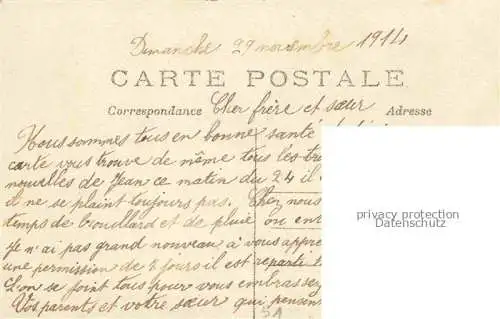 Dimanche 29 novembre 1914
CARTE POSTALE
Correspondance Cher frère et sœur Adresse
Nous sommes tous en bonne santé
carte vous trouve de même tous les
nouvelles de Jean ce matin du 24 il
il ne se plaint toujours pas. Chez nous
temps de brouillard et de pluie ou
Je n'ai pas grand nouveau à vous
une permission de 2 jours il est reparti
L'on se joint tous pour vous embrasser
Vos parents et votre sœur qui pensent
privacy protection
Datenschutz